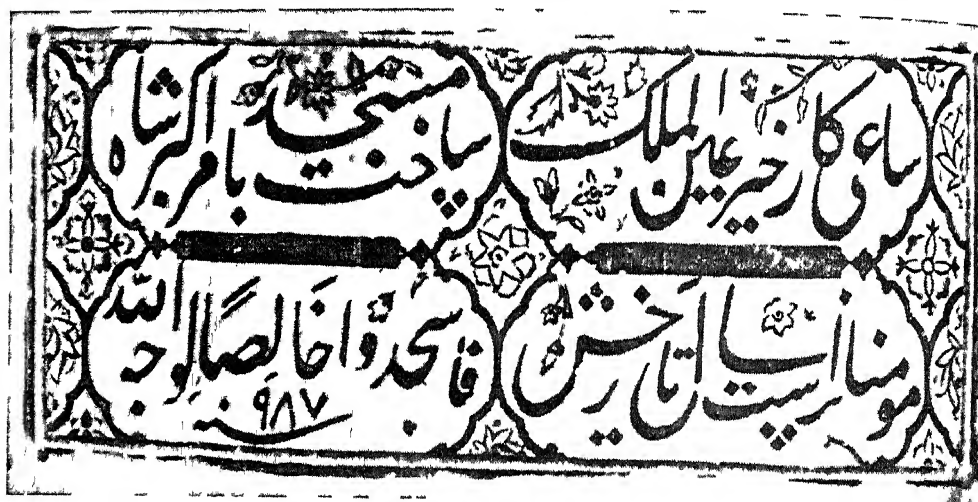 ساعی کار خیر عین الملک
ساخت مسجد بامر اکبر شاه
مومنانراست سال تاریخش
فاسجدوا خالصًا لوجه الله
سنه ۹۸۷